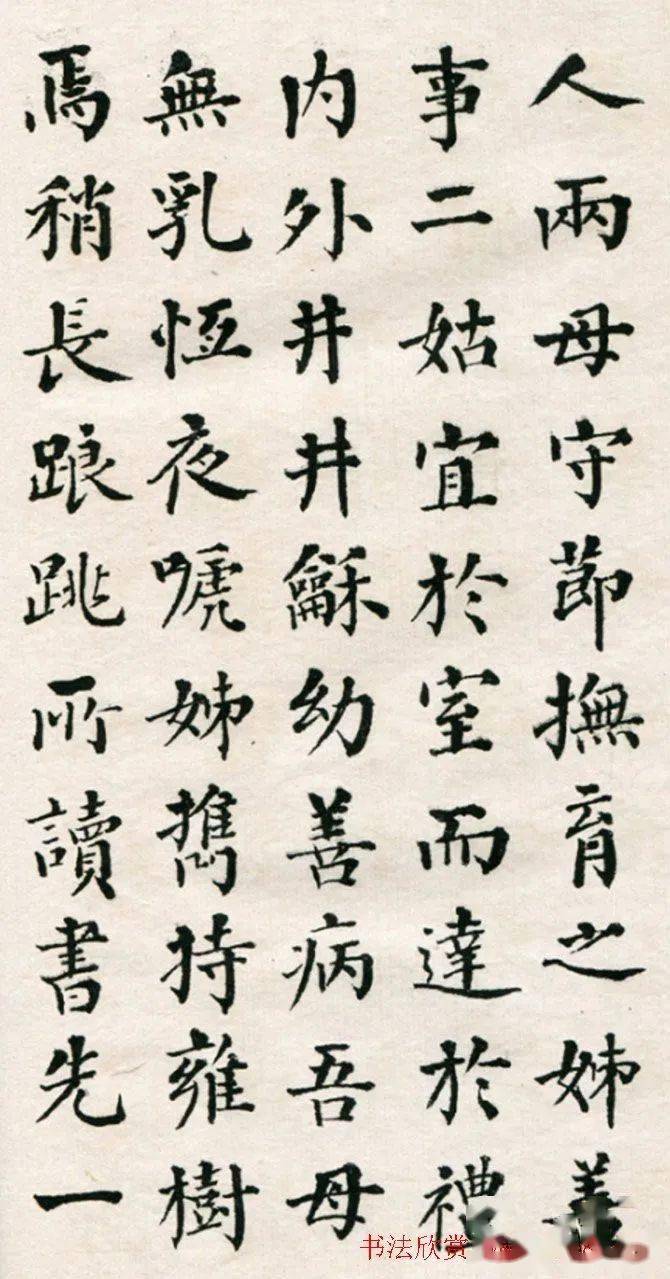 人兩母守節撫育之姊善
事二姑宜於室而達於禮
内外井井龢幼善病吾母
無乳恆夜嗁姊攜持雍樹
焉稍長踉跳所讀書先一
书法欣赏